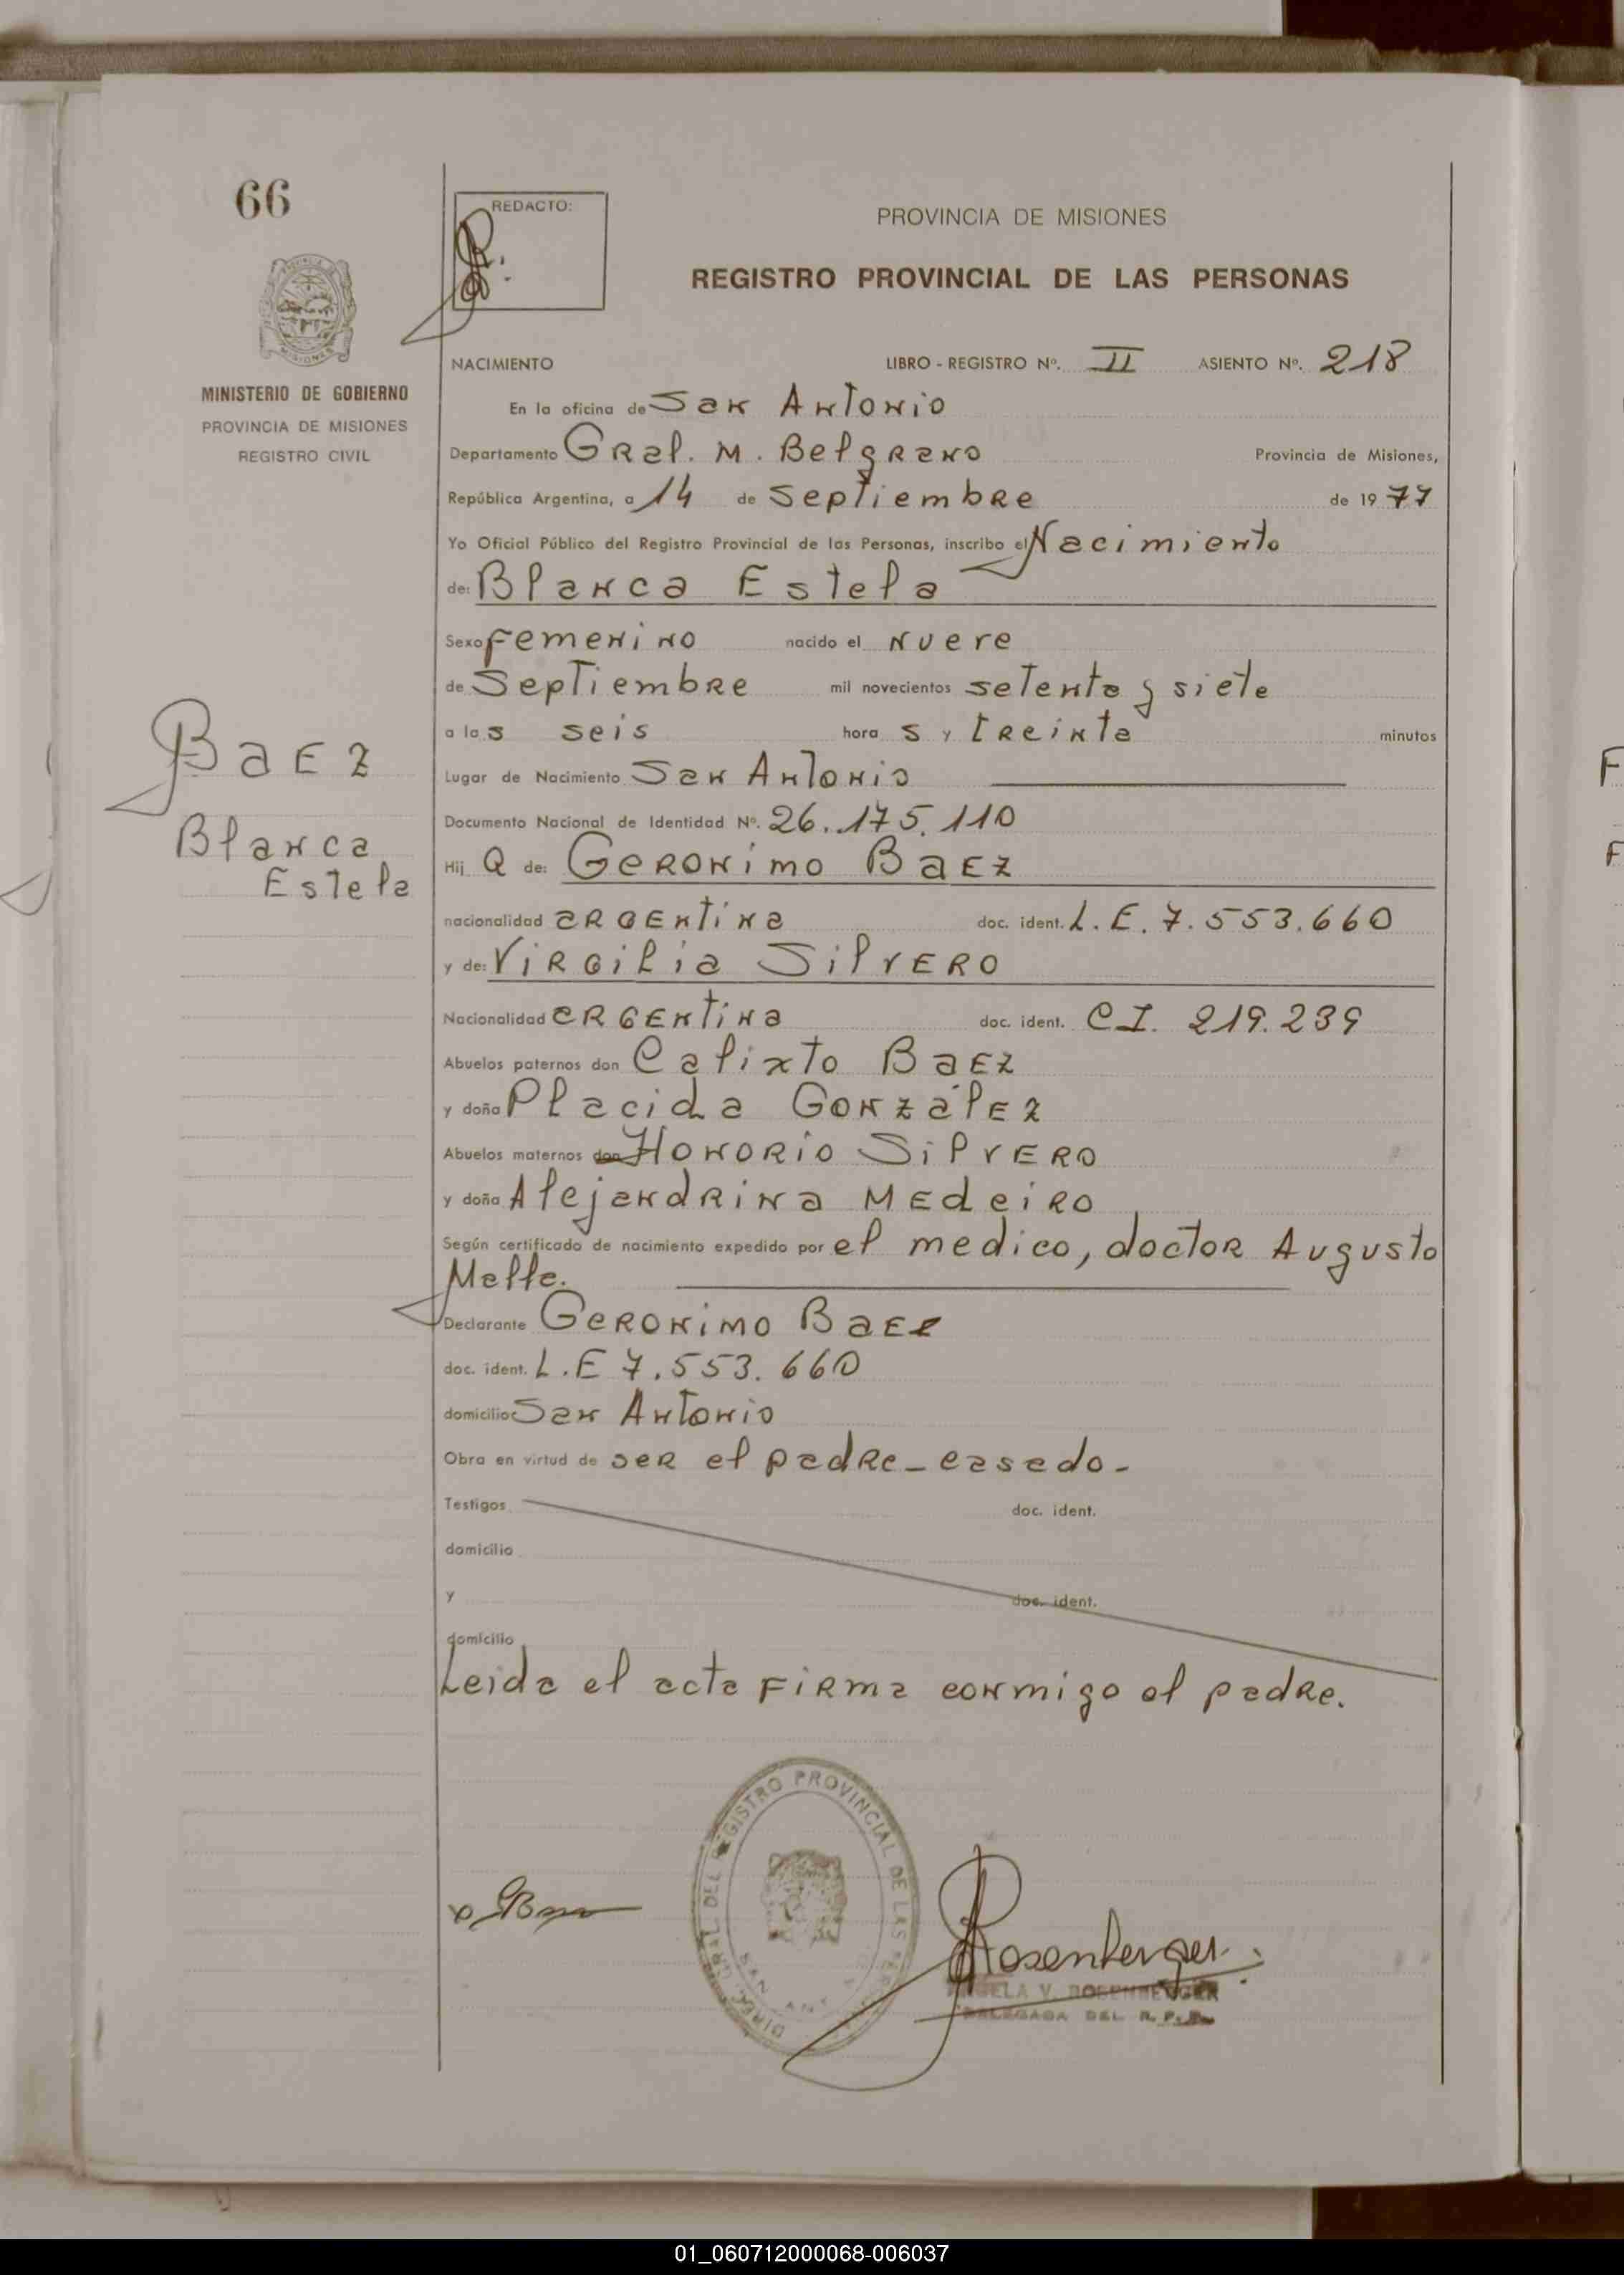 66
REDACTO:
PROVINCIA DE MISIONES
REGISTRO PROVINCIAL DE LAS PERSONAS
MINISTERIO DE GOBIERNO
PROVINCIA DE MISIONES
REGISTRO CIVIL
NACIMIENTO LIBRO - REGISTRO Nº. II ASIENTO Nº. 218
En la oficina de San Antonio
Departamento Gral. M. Belgrano Provincia de Misiones,
República Argentina, a 14 de Septiembre de 1977
Yo Oficial Público del Registro Provincial de las Personas, inscribo el Nacimiento
de: Blanca Estela
Sexo femenino nacido el nueve
de Septiembre mil novecientos setenta y siete
a las seis horas y treinta minutos
Lugar de Nacimiento San Antonio
Documento Nacional de Identidad Nº. 26.175.110
Baez
Blanca
Estela
Hija de: Geronimo Baez
nacionalidad argentina doc. ident. L.E. 7.553.660
y de: Virgilia Silvero
Nacionalidad argentina doc. ident. C.I. 219.239
Abuelos paternos don Calixto Baez
y doña Placida González
Abuelos maternos don Honorio Silvero
y doña Alejandrina Medeiro
Según certificado de nacimiento expedido por el medico, doctor Augusto
Melle.
Declarante Geronimo Baez
doc. ident. L.E 7.553.660
domicilio San Antonio
Obra en virtud de ser el padre - casado -
Testigos doc. ident.
domicilio
y doc. ident.
domicilio
Leida el acta firma conmigo el padre.
DIREC. GRAL. DEL REGISTRO PROVINCIAL DE LAS PERSONAS
Rosenberger
V. ROSENBERGER
DELEGADA DEL R. P. P.
01_060712000068-006037